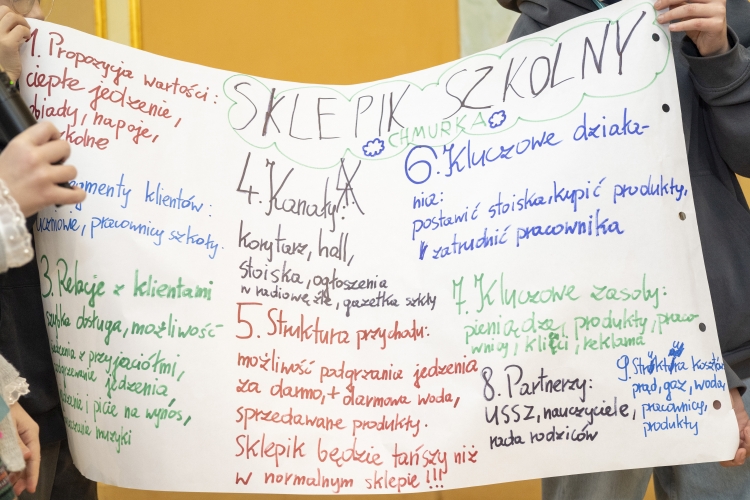 SKLEPIK SZKOLNY
CHMURKA
1. Propozycja wartości:
ciepłe jedzenie,
obiady, napoje,
klientów:
uczniowie, pracownicy szkoły.
3. Relacje z klientami
szybka obsługa, możliwość
z przyjaciółmi,
jedzenia
i picie na wynos,
muzyki
4. Kanały:
korytarz, hall,
stoiska, ogłoszenia
w radiowęźle, gazetka szkły
5. Struktura przychodu:
możliwość podgrzania jedzenia
za darmo, + darmowa woda,
sprzedawane produkty.
Sklepik będzie tańszy niż
w normalnym sklepie!!!
6. Kluczowe działa-
nia:
postawić stoiska, kupić produkty,
zatrudnić pracownika
7. Kluczowe zasoby:
pieniądze, produkty, praco-
wnicy, klięci, reklama
8. Partnerzy:
USSZ, nauczyciele,
rada rodziców
9. Struktura kosztów
prąd, gaz, woda,
pracownicy,
produkty